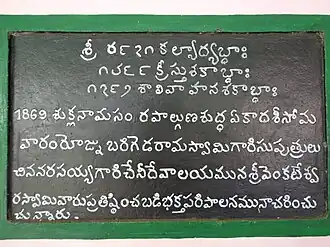 శ్రీ ౪౯౭౧ కల్యాద్యబ్దాః
౧౮౬౯ క్రీస్తుశకాబ్దాః
౧౭౯౧ శాలివాహనశకాబ్దాః
1869 శుక్లనామసం రపాల్గుణశుద్ధ ఏకాదశీసోమ
వారంరోజ్న బరగెడరామస్వామిగారిసుపుత్రులు
చిననరసయ్యగారిచేరీదేవాలయమున శ్రీవెంకటేశ్వ
రస్వామివారుప్రతిష్ఠించబడిభక్తపరిపాలనమునాచరించు
చున్నారు.